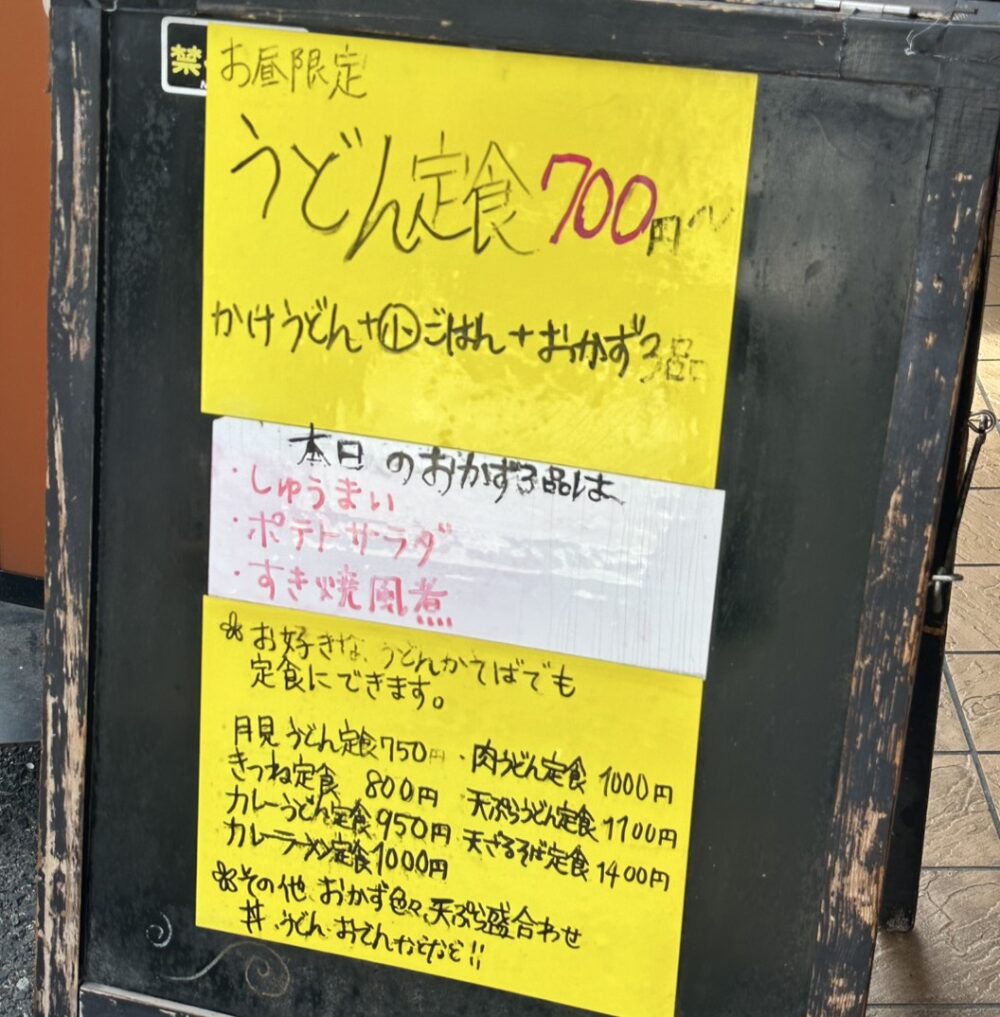 禁
お昼限定
うどん定食 700円〜
かけうどん+㋛ごはん+おかず3品
本日のおかず3品は
・しゅうまい
・ポテトサラダ
・すき焼風煮
お好きな、うどんかそばでも
定食にできます。
月見うどん定食750円 ・肉うどん定食 1000円
きつね定食 800円 天ぷらうどん定食1100円
カレーうどん定食950円・天ざるそば定食1400円
カレーラーメン定食1000円
その他、おかず色々、天ぷら盛合わせ
丼・うどん・おでんなどなど!!